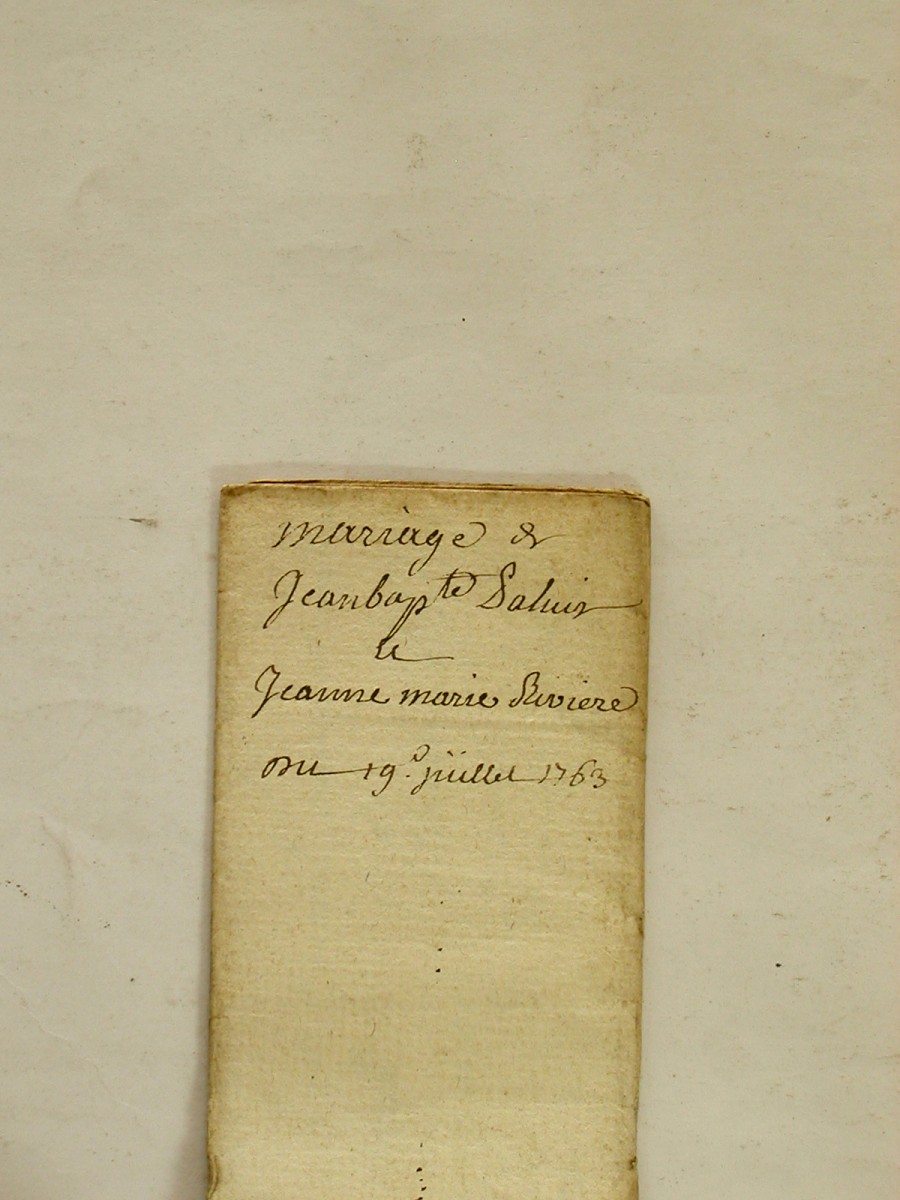 mariage de
Jeanbapte Saluir
et
Jeanne marie Riviere
Du 19e juïllet 1763